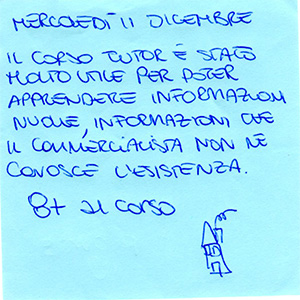 MERCOLEDÌ 11 DICEMBRE
IL CORSO TUTOR È STATO
MOLTO UTILE PER POTER
APPRENDERE INFORMAZIONI
NUOVE, INFORMAZIONI CHE
IL COMMERCIALISTA NON NE
CONOSCE L'ESISTENZA.
8+ al CORSO